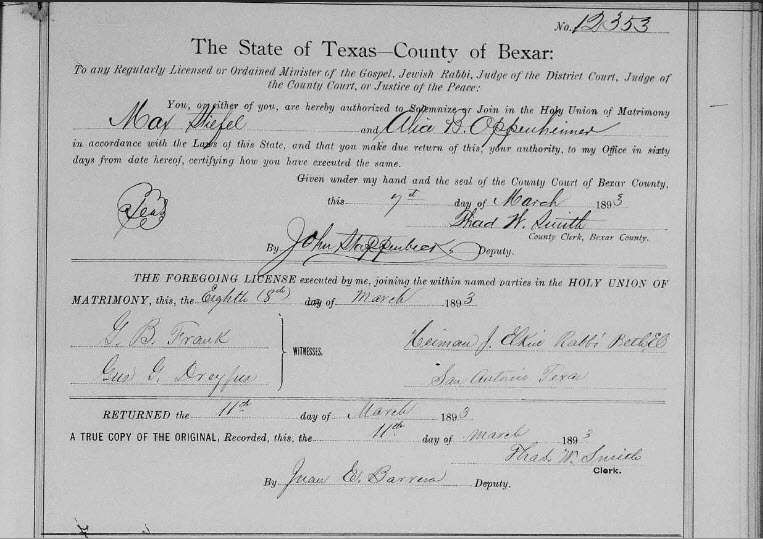 No. 12353
The State of Texas—County of Bexar:
To any Regularly Licensed or Ordained Minister of the Gospel, Jewish Rabbi, Judge of the District Court, Judge of
the County Court, or Justice of the Peace:
You, or either of you, are hereby authorized to Solemnize or Join in the Holy Union of Matrimony
Max Stiefel and Alice B. Oppenheimer
in accordance with the Laws of this State, and that you make due return of this, your authority, to my Office in sixty
days from date hereof, certifying how you have executed the same.
Given under my hand and the seal of the County Court of Bexar County,
Seal
this 7th day of March 1893
Thad W. Smith
County Clerk, Bexar County.
By John Stappenbeck Deputy.
THE FOREGOING LICENSE executed by me, joining the within named parties in the HOLY UNION OF
MATRIMONY, this, the Eighth (8th) day of March 1893
G. B. Frank
Gus G. Dreyfus
WITNESSES.
Heiman J. Elkin Rabbi Beth El
San Antonio Texas
RETURNED the 11th day of March 1893
A TRUE COPY OF THE ORIGINAL, Recorded, this, the 11th day of March 1893
Thad. W. Smith
Clerk.
By Juan E. Barrera Deputy.